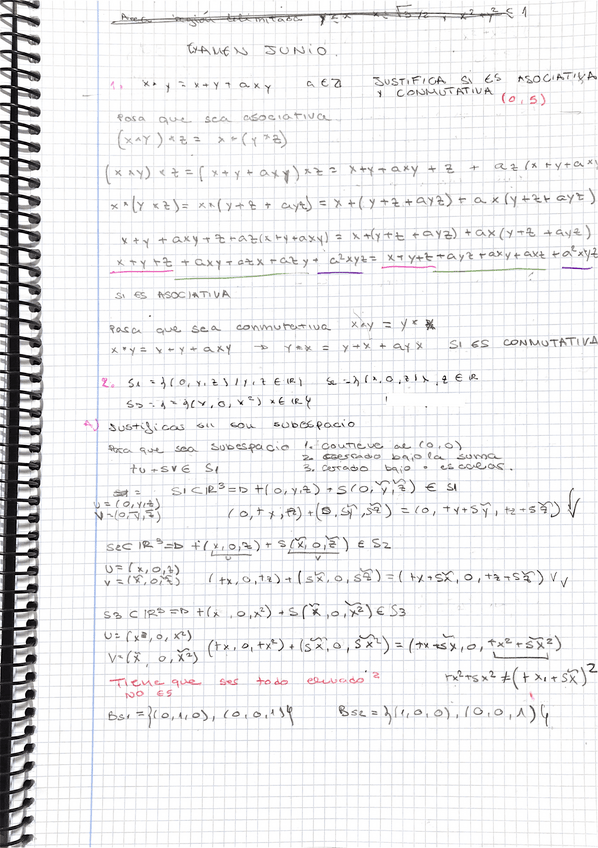 Area región delimitada y ≤ x x = √3/2, x² + y² ≤ 1
EXAMEN JUNIO.
1. x * y = x + y + axy a ∈ Z JUSTIFICA SI ES ASOCIATIVA
Y CONMUTATIVA (0,5)
Para que sea asociativa
(x*y) * z = x * (y*z)
(x*y) * z = (x + y + axy) * z = x + y + axy + z + az(x + y + axy
x * (y * z) = x * (y + z + ayz) = x + (y + z + ayz) + ax(y + z + ayz)
x + y + axy + z + az(x + y + axy) = x + (y + z + ayz) + ax(y + z + ayz)
x + y + z + axy + azx + azy + a²xyz = x + y + z + ayz + axy + axz + a²xyz
SI ES ASOCIATIVA
Para que sea conmutativa x*y = y * x
x * y = x + y + axy → y * x = y + x + ayx SI ES CONMUTATIVA
2. S1 = {(0, y, z) / y, z ∈ IR} S2 = {(x, 0, z) x, z ∈ IR
S3 = {(x, 0, x²) x ∈ IR}
A) Justificas si son subespacio
Para que sea subespacio 1. contiene al (0,0)
2. cerrado bajo la suma
tu + sv ∈ S1 3. cerrado bajo • escalar.
S1 ⊂ IR³ => t(0, y, z) + s(0, ỹ, z̃) ∈ S1
u = (0, y, z)
v = (0, ỹ, z̃) (0, ty, tz) + (0, sỹ, sz̃) = (0, ty + sỹ, tz + sz̃) √
S2 ⊂ IR³ => t(x, 0, z) + s(x̃, 0, z̃) ∈ S2
u v
u = (x, 0, z)
v = (x̃, 0, z̃) (tx, 0, tz) + (sx̃, 0, sz̃) = (tx + sx̃, 0, tz + sz̃) √
S3 ⊂ IR³ => t(x, 0, x²) + s(x̃, 0, x̃²) ∈ S3
u = (x, 0, x²)
v = (x̃, 0, x̃²) (tx, 0, tx²) + (sx̃, 0, sx̃²) = (tx + sx, 0, tx² + sx̃²)
Tiene que ser todo elevado ² tx² + sx² ≠ (tx, + sx̃)²
NO ES
Bs1 = {(0,1,0), (0,0,1)} Bs2 = {(1,0,0), (0,0,1)}